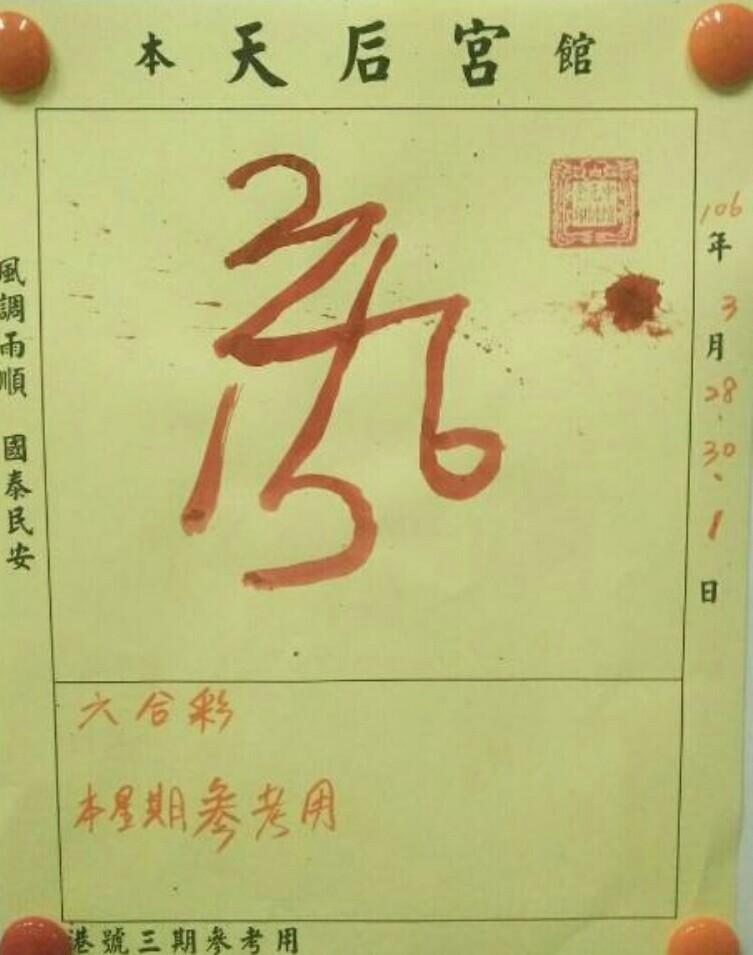 本天后宮館
106年3月28、30、1日
風調雨順 國泰民安
六合彩
本星期參考用
港號三期參考用